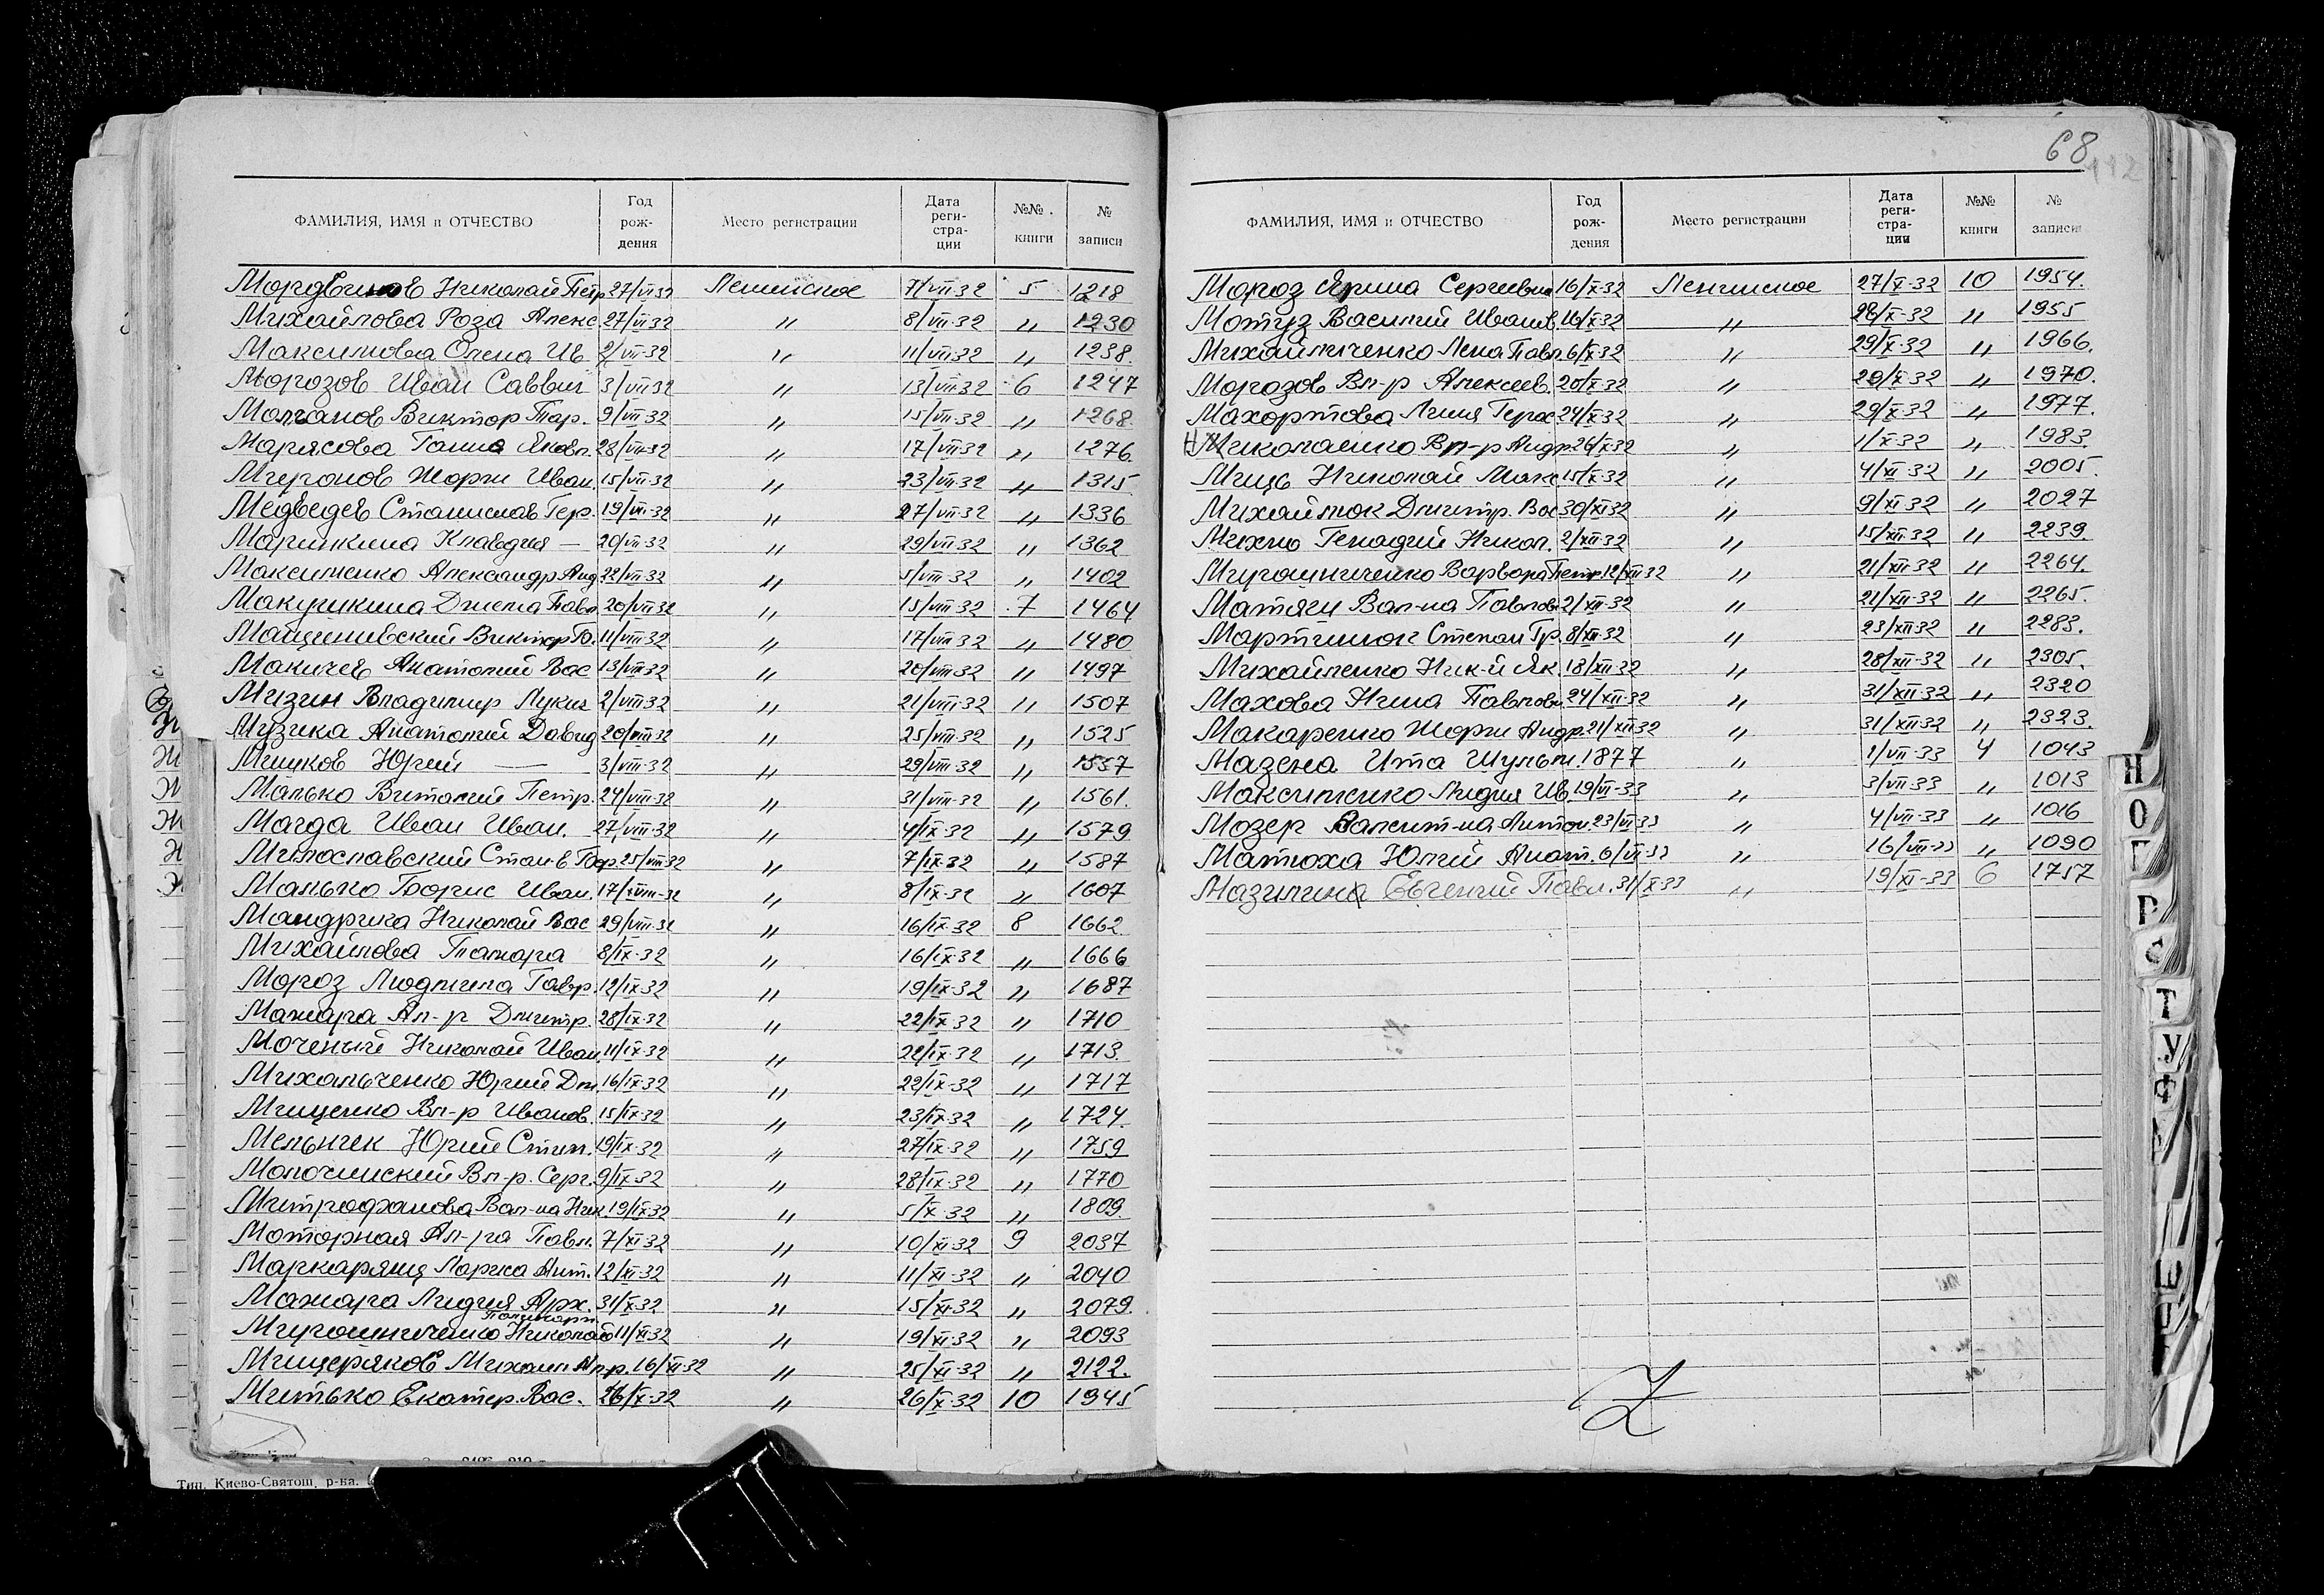 ФАМИЛИЯ, ИМЯ и ОТЧЕСТВО Год рождения Место регистрации Дата регистрации №№ книги № записи
Мордвинов Николай Петр 27/VI 32 Ленинское 7/VII 32 5 1218
Михайлова Роза Алекс 27/VI 32 " 8/VII-32 " 1230
Максимова Олена Ив 2/VII-32 " 11/VII-32 " 1238.
Морозов Иван Саввич 3/VII 32 " 13/VII-32 6 1247
Молчанов Виктор Тар. 9/VII-32 " 15/VII-32 " 1268.
Марясова Ганна Яковл. 28/VI-32 " 17/VII 32 " 1276.
Миронов Жорж Иван. 15/VII-32 " 23/VII-32 " 1315
Медведев Станислав Гер. 19/VII-32 " 27/VII-32 " 1336
Маринкина Клавдия — 20/VII-32 " 29/VII 32 " 1362
Максименко Александр Анд 22/VII-32 " 5/VIII-32 " 1402
Макушкина Павл. 20/VII 32 " 15/VIII-32 7 1464
Виктор 11/VIII-32 " 17/VIII 32 " 1480
Макичев Анатолий Вас 13/VIII-32 " 20/VIII 32 " 1497
Мизин Владимир Лукич 2/VIII 32 " 21/VIII-32 " 1507
Музика Анатолий Давид 20/VIII 32 " 25/VIII-32 " 1525
Мишков Юрий — 3/VIII-32 " 29/VIII 32 " 1557
Малько Виталий Петр. 24/VIII-32 " 31/VIII-32 " 1561.
Магда Иван Иван. 27/VIII-32 " 4/IX-32 " 1579
Милославский Стан-в 25/VIII 32 " 7/IX-32 " 1587
Малько Борис Иван. 17/VIII-32 " 8/IX-32 " 1607
Мандрика Николай Вас 29/VIII-32 " 16/IX-32 8 1662
Михайлова Тамара 8/IX-32 " 16/IX-32 " 1666
Мороз Людмила Гавр. 12/IX-32 " 19/IX-32 " 1687
Мажара Ал-р Дмитр. 28/IX-32 " 22/IX-32 " 1710
Моченый Николай Иван. 11/IX-32 " 22/IX-32 " 1713.
Михальченко Юрий Дм. 16/IX-32 " 22/IX-32 " 1717
Мищенко Вл-р Иванов. 15/IX-32 " 23/IX-32 " 1724.
Мельник Юрий Степ. 19/IX-32 " 27/IX-32 " 1759
Молочинский Вл-р. Серг. 9/IX-32 " 28/IX-32 " 1770
Митрофанова Вал-на Ник. 19/IX-32 " 5/X-32 " 1809.
Моторная Ал-ра Павл. 7/XI-32 " 10/XI-32 9 2037
Лариса Ант. 12/XI-32 " 11/XI-32 " 2040
Мажара Лидия Арх. 31/X-32 " 15/XI-32 " 2079.
Поликарп.
Мирошниченко Николай 11/XI-32 " 19/XI-32 " 2093
Мищеряков Михаил Ал-р. 16/XI-32 " 25/XI-32 " 2122.
Митько Екатер. Вас. 26/X-32 " 26/X-32 10 1945
Тип. Киево-Святош. р-на.
68
ФАМИЛИЯ, ИМЯ и ОТЧЕСТВО Год рождения Место регистрации Дата регистрации №№ книги № записи
Мороз Ярина Сергеевна 16/X-32 Ленинское 27/X-32 10 1954.
Мотуз Василий Иванов. 16/X-32 " 28/X-32 " 1955
Михайличенко Лена Павл. 6/X-32 " 29/X-32 " 1966.
Морозов Вл-р Алексеев. 20/X-32 " 29/X-32 " 1970.
Махортова Лиля Герас 24/X-32 " 29/X-32 " 1977.
Миколаенко Вл-р Андр. 26/X-32 " 1/X-32 " 1983.
Миць Николай Макс. 15/X-32 " 4/XI-32 " 2005.
Михайлюк Дмитр. Вас 30/XI 32 " 9/XI-32 " 2027
Михно Генадий Никол. 2/XII-32 " 15/XII-32 " 2239
Мирошниченко Варвара Петр. 12/XII 32 " 21/XII-32 " 2264.
Матяги Вал-на Павлов. 2/XII-32 " 21/XII-32 " 2265.
Мартинюк Степан Гр. 8/XII-32 " 23/XII 32 " 2283.
Михайленко Ник-й Як. 18/XII-32 " 28/XII-32 " 2305.
Махова Нина Павловн. 24/XII-32 " 31/XII-32 " 2320
Макаренко Жорж Андр. 21/XII 32 " 31/XII 32 " 2323.
Мазена Ита Шульм. 1877 " 1/VII-33 4 1043
Максименко Лидия Ив. 19/VI-33 " 3/VII-33 " 1013
Мозер Валент-на Антон. 23/VI-33 " 4/VII-33 " 1016
Матюха Юлий Анат. 6/VI-33 " 16/VII-33 " 1090
Мазилина Евгений Павл. 31/X-33 " 19/XI-33 6 1757
Z
Н
О
П
Р
С
Т
У
Ф
Ш